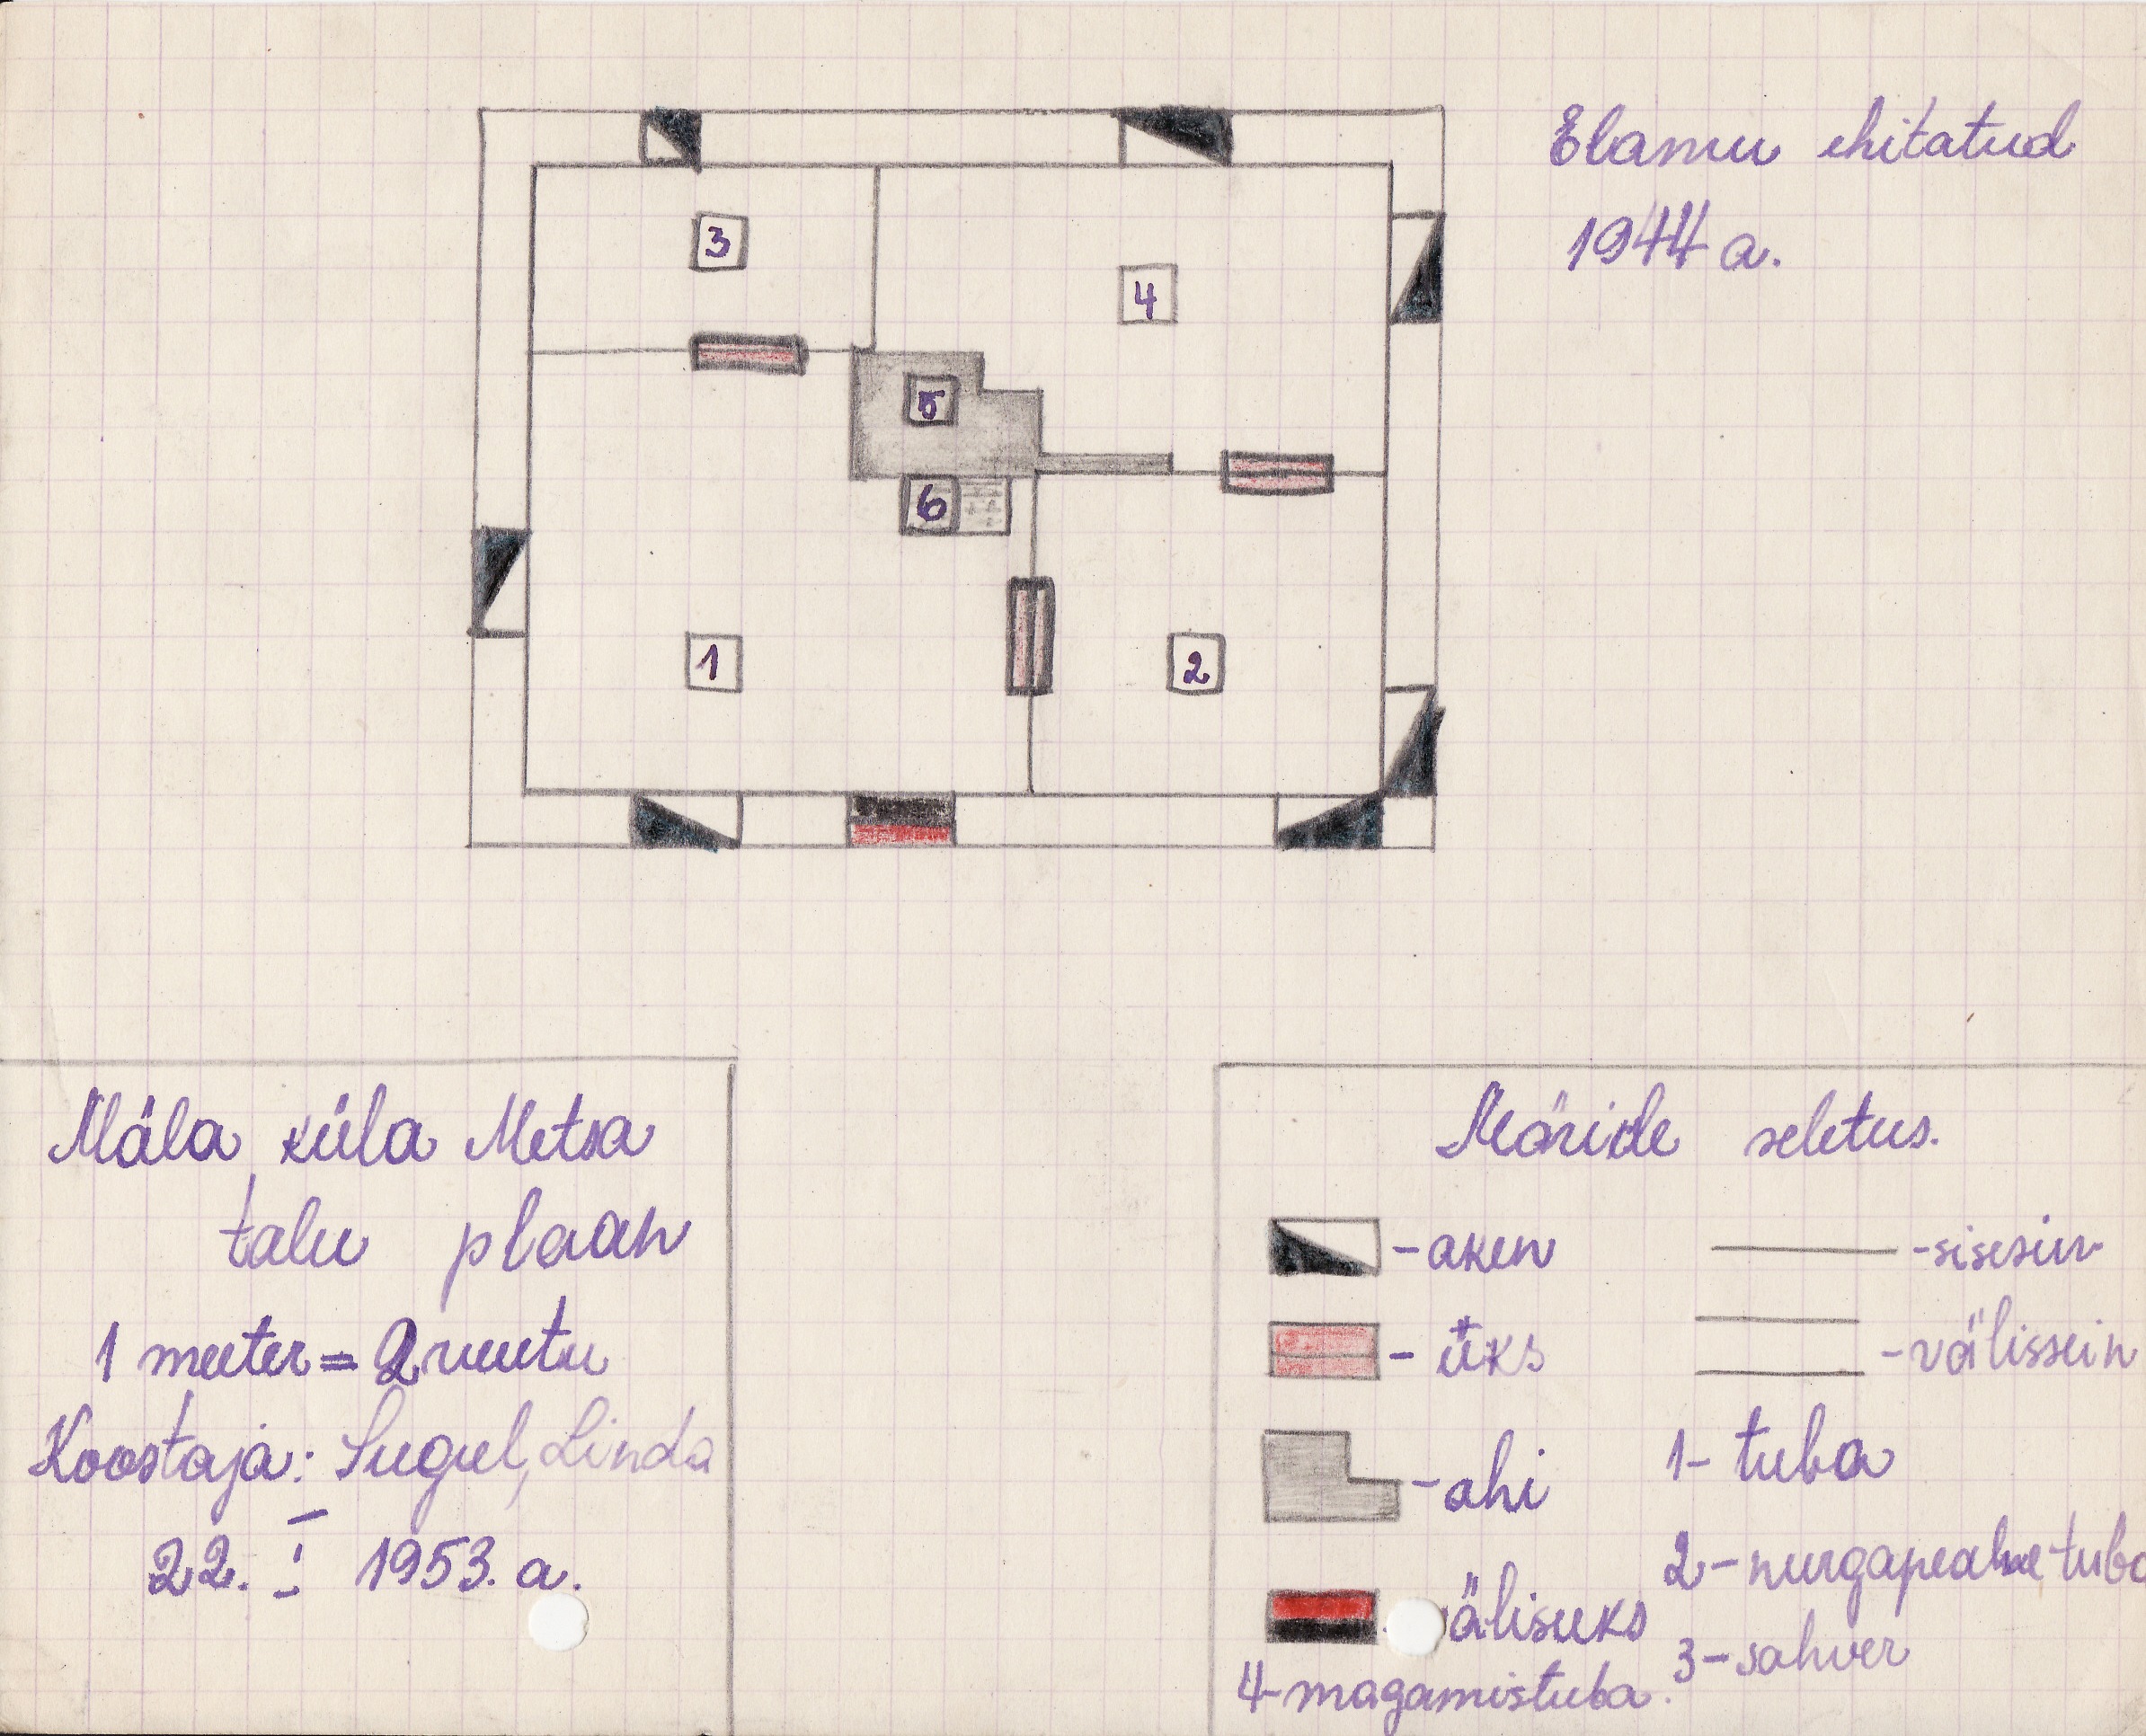 Elamu ehitatud
1944 a.
3
4
5
6
1
2
Mäla küla Metsa
talu plaan
1 meeter = 2 ruutu
Koostaja: Sugul, Linda
22. I 1953. a.
Märide seletus.
-aken
-sisesin
- üks
-välissein
-ahi
1- tuba
2-nurgapealne tuba
älisuks
3-sahver
4-magamistuba.